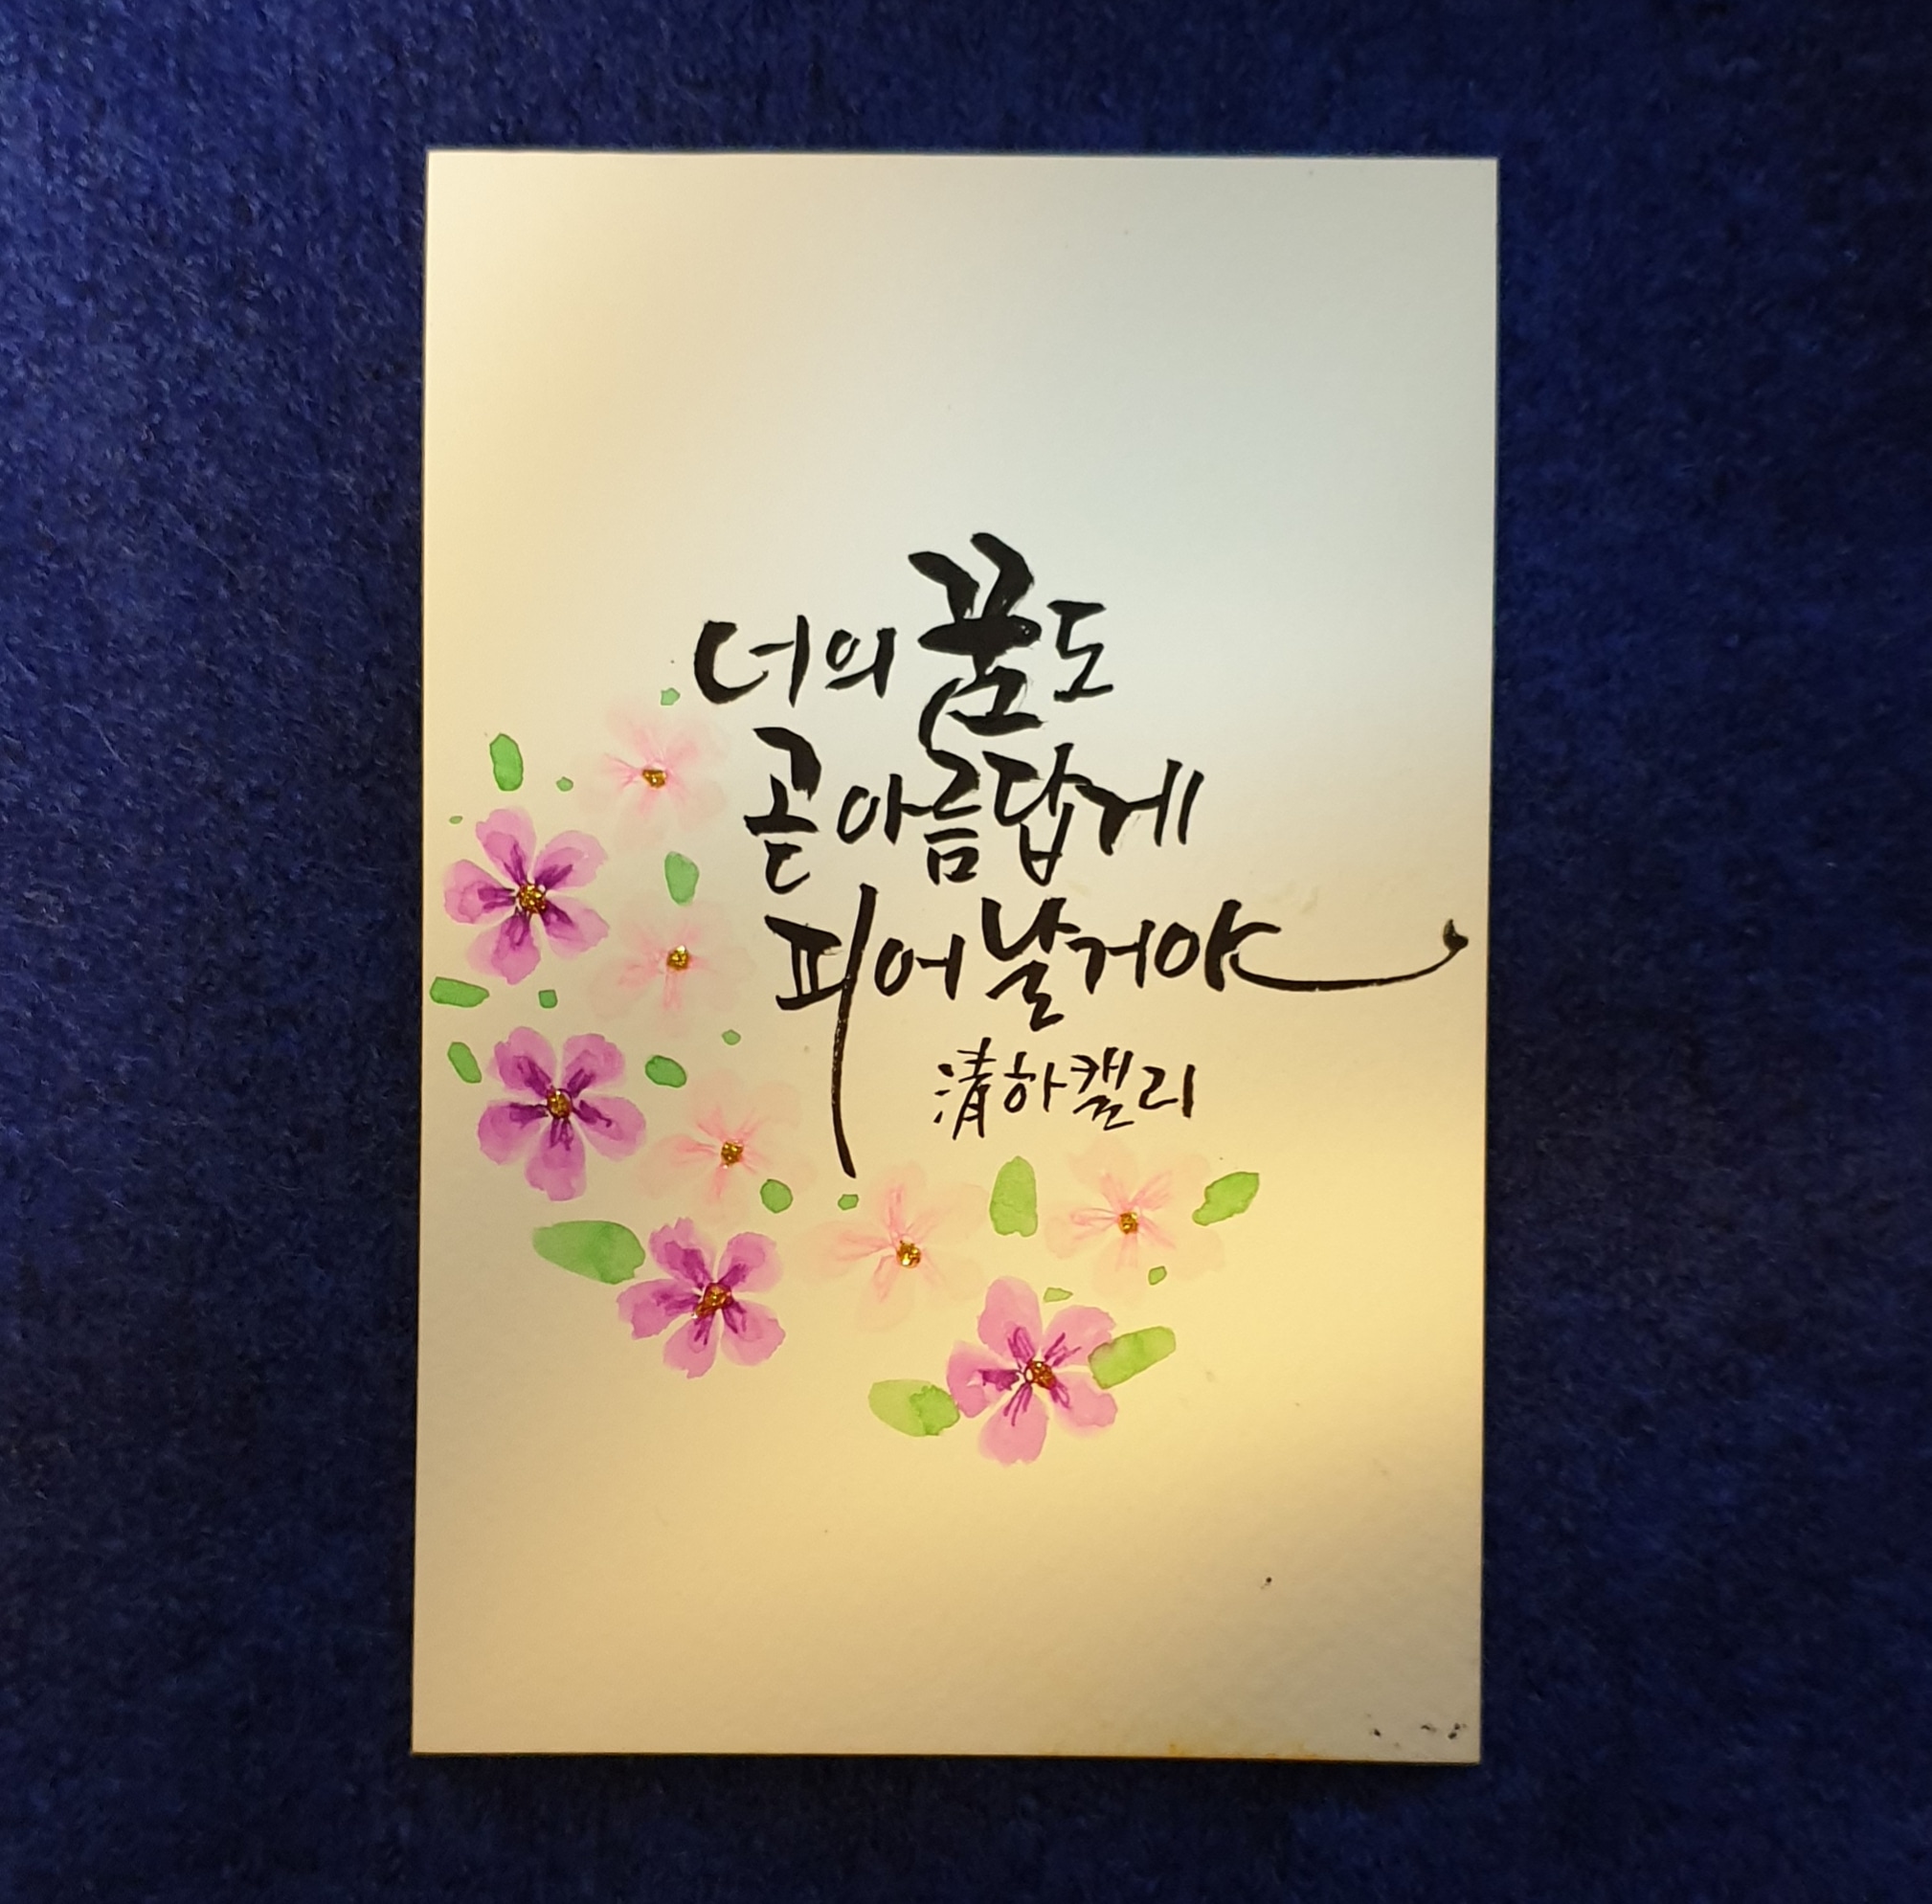 너의 꿈도
곧 아름답게
피어날거야
淸하캘리